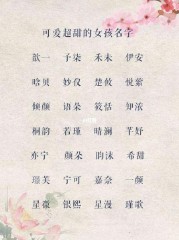 可爱超甜的女孩名字
歆一 子柒 禾末 伊安
晗贝 妙仪 楚敛 悦萦
倾颜 语朵 筱恬
桐韵 若瑾 晴澜 芊妤
亦宁 颜朵 韵沫 希甜
瑶芙 宁可 嘉奈 一颜
星薇 银熙 星漫 瑾歌